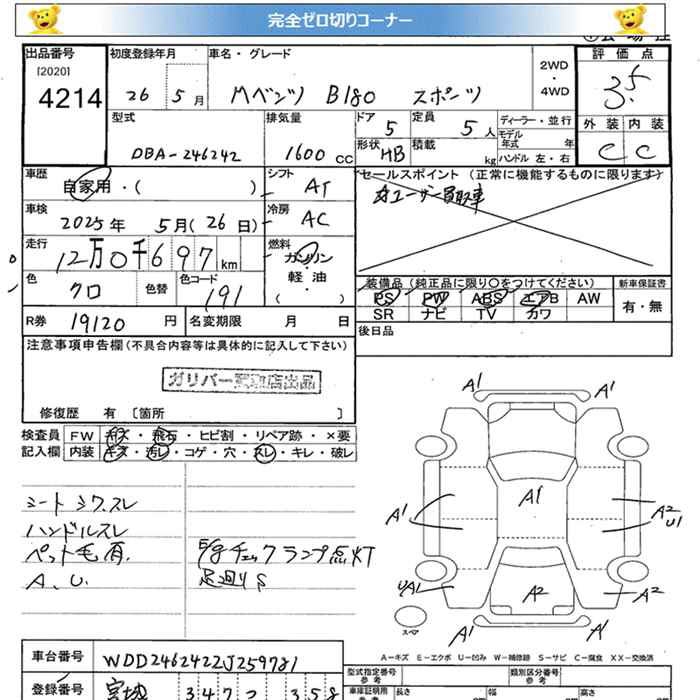 完全ゼロ切りコーナー
出品番号
[2020]
4214
初度登録年月
26 5月
車名・グレード
Mベンツ B180 スポーツ
2WD
・
4WD
評価点
3.5
外装 内装
C C
型式
DBA-246242
排気量
1600 cc
ドア 5
定員 5人
形状 HB
積載 kg
ディーラー・並行
モデル年式 年
ハンドル 左・右
車歴
自家用・( )
シフト
AT
セールスポイント(正常に機能するものに限ります)
ユーザー買取車
車検
2025年 5月(26日)
冷房
AC
走行
12万0千697km
燃料
ガソリン
軽・油
( )
色
クロ
色替
色コード
191
装備品(純正品に限り○をつけてください)
新車保証書
PS PW ABS エアB AW
SR ナビ TV カワ
有・無
R券 19120円
名変期限 月 日
後日品
注意事項申告欄(不具合内容等は具体的に記入して下さい)
ガリバー
店出品
修復歴 有 〔箇所 〕
検査員
記入欄
FW キズ・飛石・ヒビ割・リペア跡・×要
内装 キズ・汚レ・コゲ・穴・スレ・キレ・破レ
シートシワ.スレ
ハンドルスレ
ペット毛有.
A.U.
チェックランプ点灯
足廻りS
A1 A1
A1 A1 A2
U1
UA1 A2 A2
A1 A1
スペア
A-キズ E-エクボ U-凹み W-補修跡 S-サビ C-腐食 XX-交換済
車台番号
WDD2462422J259781
登録番号
宮城 347
358
型式指定番号
参考
類別区分番号
参考
車庫証明用
長さ 幅 高さ